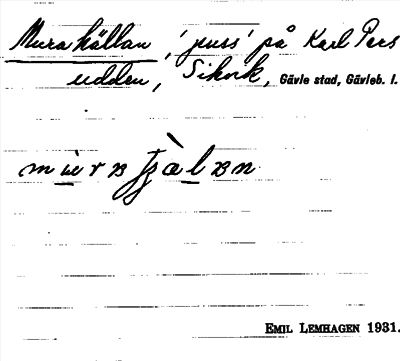 Murahällan, 'puss' på Karl Pers
udden, Sikvik, Gävle stad, Gävleb. l.
EMIL LEMHAGEN 1931.